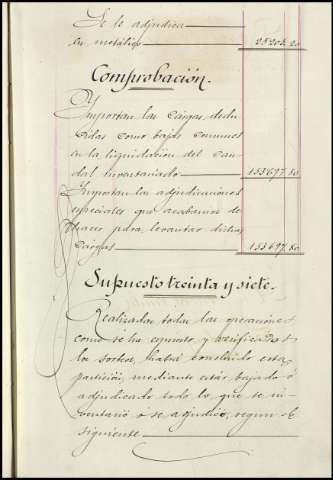 Se le adjudica
en metálico 25203.20
Comprobación.
Importan las cargas, dedu
cidas como bajas comunes
en la liquidación del cau
dal inventariado 153697.80
Importan las adjudicaciones
especiales que acabamos de
hacer para levantar dichas
cargas 153697.80
Supuesto treinta y siete.
Realizadas todas las operaciones
como se ha expuesto, y verificados
los sorteos, habrá concluido esta
partición, mediante estar bajado ó
adjudicado todo lo que se in
ventarió ó se adjudicó, según el
siguiente